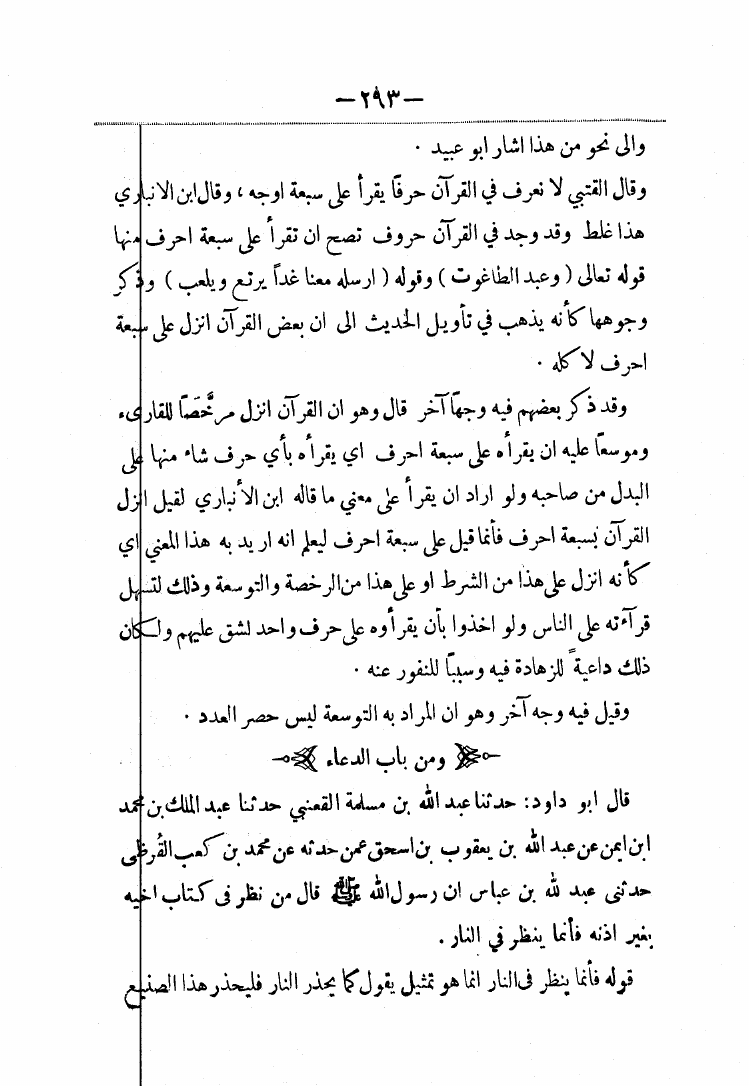 —٢٩٣—
والى نحو من هذا اشار ابو عبيد ٠
وقال القتبي لا نعرف في القرآن حرفًا يقرأ على سبعة اوجه ، وقال ابن الانباري
هذا غلط وقد وجد في القرآن حروف تصح ان تقرأ على سبعة احرف منها
قوله تعالى ( وعبد الطاغوت ) وقوله ( ارسله معنا غداً يرتع ويلعب ) وذكر
وجوهها كأنه يذهب في تأويل الحديث الى ان بعض القرآن انزل على سبعة
احرف لا كله ٠
وقد ذكر بعضهم فيه وجهًا آخر قال وهو ان القرآن انزل مرخَّصًا للقارىء
وموسعًا عليه ان يقرأه على سبعة احرف اي يقرأه بأي حرف شاء منها على
البدل من صاحبه ولو اراد ان يقرأ على معنى ما قاله ابن الأنباري لقيل انزل
القرآن بسبعة احرف فأنما قيل على سبعة احرف ليعلم انه اريد به هذا المعنى اي
كأنه انزل على هذا من الشرط او على هذا من الرخصة والتوسعة وذلك لتسهل
قرآءته على الناس ولو اخذوا بأن يقرأوه على حرف واحد لشق عليهم ولكان
ذلك داعيةً للزهادة فيه وسببًا للنفور عنه ٠
وقيل فيه وجه آخر وهو ان المراد به التوسعة ليس حصر العدد ٠
ومن باب الدعاء
قال ابو داود: حدثنا عبد الله بن مسلمة القعنبي حدثنا عبد الملك بن محمد
ابن ايمن عن عبد الله بن يعقوب بن اسحق عمن حدثه عن محمد بن كعب القُرظى
حدثنى عبد لله بن عباس ان رسول الله ﷺ قال من نظر فى كتاب اخيه
بغير اذنه فأنما ينظر في النار ٠
قوله فأنما ينظر فى النار انما هو تمثيل يقول كما يحذر النار فليحذر هذا الصنيع